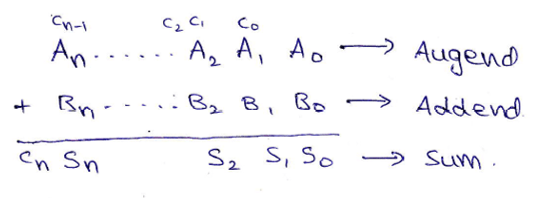 Cn-1 C2 C1 C0
An....... A2 A1 A0 → Augend
+ Bn-....: B2 B1 B0 → Addend
Cn Sn S2 S1 S0 → Sum.